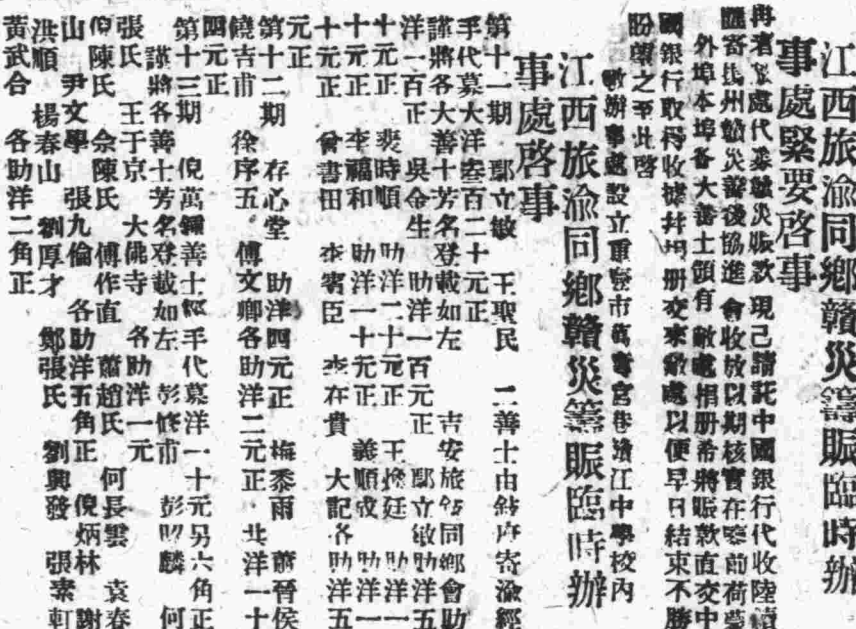 江西旅渝同鄉贛災籌賑臨時辦
事處緊要啓事
再者敝處代募贛災賑款現已請託中國銀行代收陸續
匯寄揚州贛災善後協進會收放以期核實在案前荷蒙
外埠本埠各大善士領有敝處捐册希將賑款直交中
國銀行取得收據幷捐册交來敝處以便早日結束不勝
盼禱之至此啓
敝辦事處設立重慶市萬壽宮巷贛江中學校內
江西旅渝同鄉贛災籌賑臨時辦
事處啓事
第十一期 鄢立敏 王聖民 二善士由敍府寄渝經
手代募大洋叁百二十元正
謹將各大善士芳名登載如左 吉安旅敍同鄉會助
洋一百正 吳金生 助洋一百元正 鄢立敏助洋五
十元正 裴時順 助洋二十元正 王 廷 助洋一
十元正 李福和 助洋一十元正 義順成 助洋一
十元正 曾書田 李賓臣 李在貴 大記各助洋五
元正
第十二期 存心堂 助洋四元正 梅黍雨 蕭晉侯
饒吉甫 徐序五 傅文卿各助洋二元正 共洋一十
四元正
第十三期 倪萬鎰善士經手代募洋一十元另六角正
謹將各善士芳名登載如左 彭修甫 彭昭麟 何
張氏 王于京 大佛寺 各助洋一元
倪陳氏 余陳氏 傅作直 蕭趙氏 何長雲 袁春
山 尹文學 張九倫 各助洋五角正 倪炳林 謝
洪順 楊春山 劉厚才 鄭張氏 劉興發 張素軒
黃武合 各助洋二角正